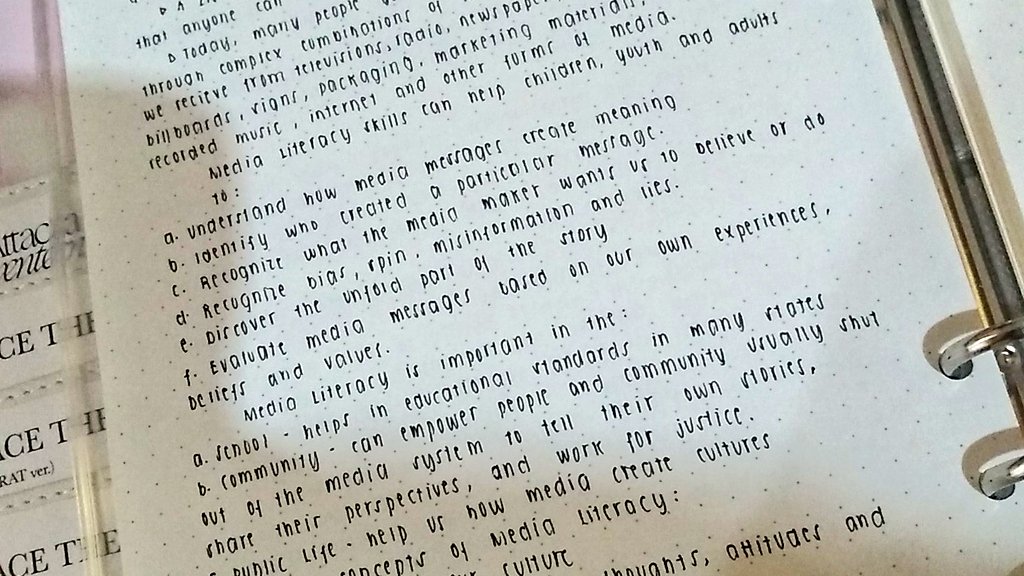 that anyone can
Today, many people
through complex combinations of
we recieve from televisions, radio, newspaper
billboards, signs, packaging, marketing materials,
recorded music, internet and other forms of media.
Media Literacy skills can help children, youth and adults
to:
a. understand how media messages create meaning
b. Identify who created a particular message.
c. Recognize what the media maker wants us to believe or do
d. Recognize bias, spin, misinformation and lies.
e. Discover the untold part of the story
f. Evaluate media messages based on our own experiences,
beliefs and values.
Media Literacy is important in the:
a. school - helps in educational standards in many states
b. community - can empower people and community usually shut
out of the media system to tell their own stories,
share their perspectives, and work for justice.
public Life - help us how media create cultures
concepts of Media Literacy:
culture
thoughts, attitudes and
Attac
vente
ACE THE
ACE THE
RAT ver.)
ACE THE